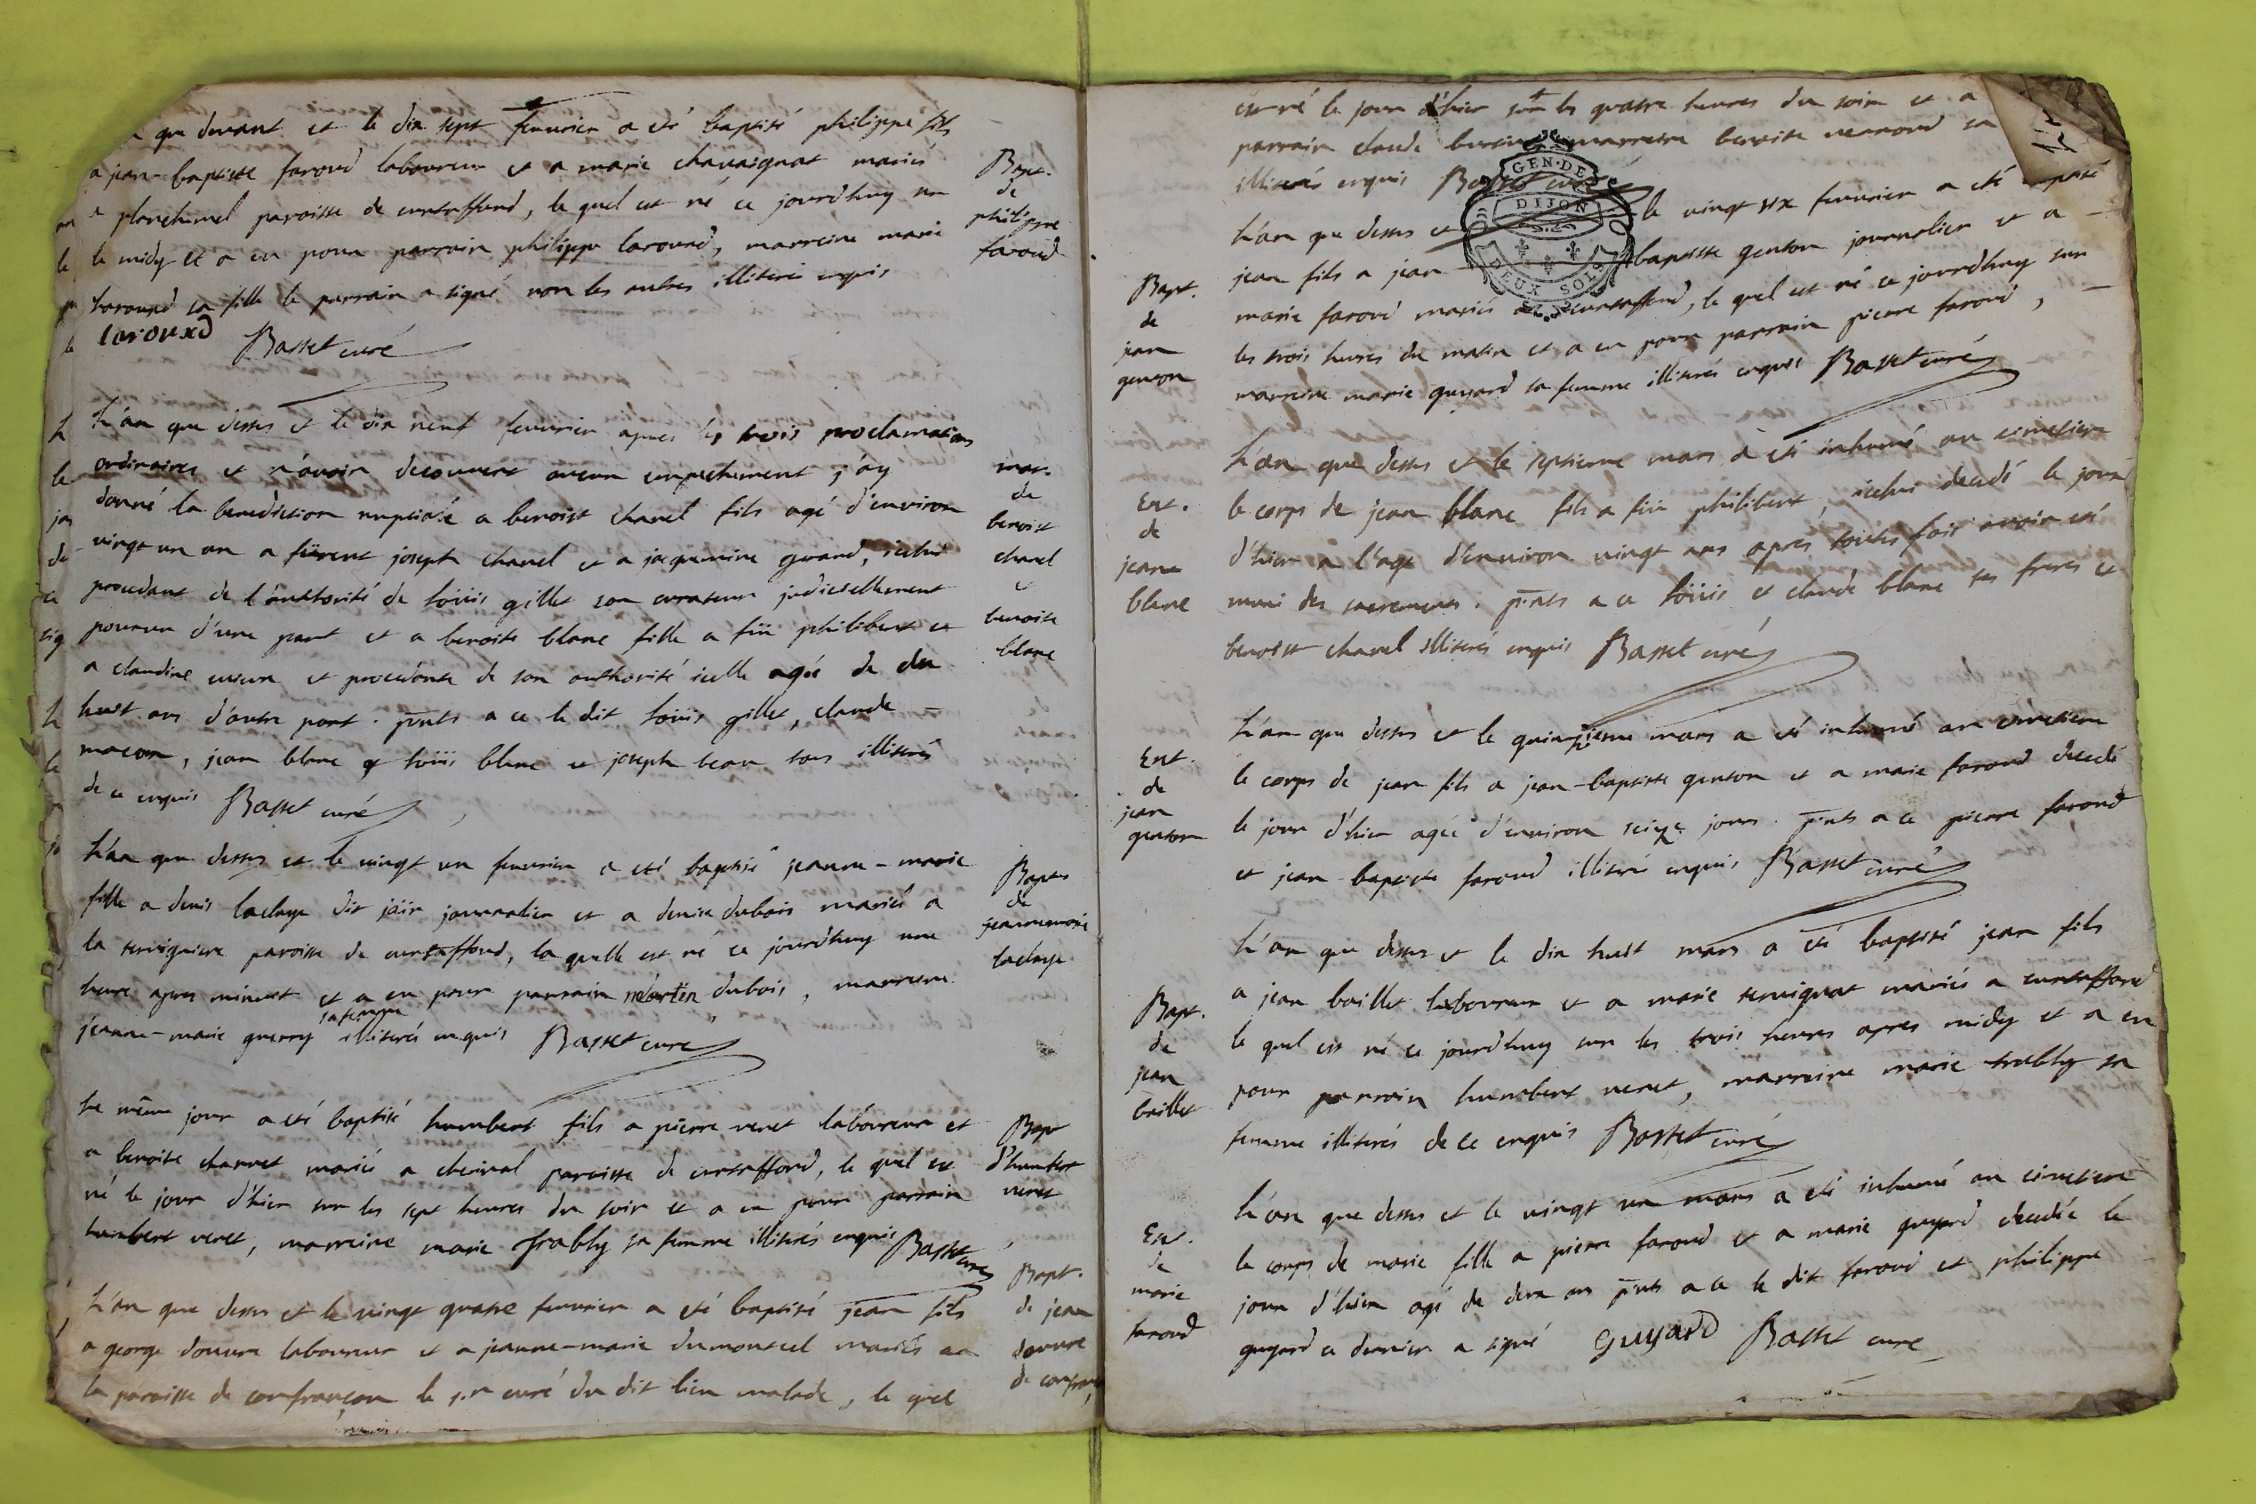 que devant et le dix sept feuvrier a été baptisé philippe fils
a jean-baptiste faroud laboureur et a marie chavaignat mariés
a planchenel paroisse de curtaffond, le quel est né ce jourd'huy sur
le midy et a eu pour parrain philippe laround, marreine marie
laround sa fille le parrain a signé non les autres illiteré enquis
laround Basset curé
Bapt.
de
philippe
faroud
L'an que dessus et le dix neuf feuvrier apres les trois proclamations
ordinaires et n'avoir decouvert aucun empechement j'ay
donné la benediction nuptiale a benoist chanel fils agé d'environ
vingt un an a feürent joseph chanel et a jacquemine guand, icelui
procedant de l'authorité de loüis gillet son curateur judiciellement
pourvu d'une part et a benoite blanc fille a füe philibert et
a claudine cuzun et procedante de son authorité icelle agée de dix
huit ans d'autre part. pnts a ce le dit loüis gillet, claude
macon, jean blanc et loüis blanc et joseph bean tous illiterés
de ce enquis Basset curé
mar.
de
benoist
chanel
et
benoite
blanc
L'an que dessus et le vingt un feuvrier a été baptisé jeanne-marie
fille a denis laclaye dit jäir journalier et a denise dubois mariés a
la servigniere paroisse de curtaffond, la quelle est né ce jourd'huy une
heure apres minuit et a eu pour parrain martin dubois, marreine
jeanne-marie guerry sa femme illiterés enquis Basset curé
Bapt
de
jeannemarie
laclaye
Le même jour a été baptisé humbert fils a pierre veret laboureur et
a benoite charvet mariés a cherinal paroisse de curtaffond, le quel est
né le jour d'hier sur les sept heures du soir et a eu pour parrain
humbert veret, marreine marie frably sa femme illiterés enquis Basset curé
Bapt
d'humbert
veret
L'an que dessus et le vingt quatre feuvrier a été baptisé jean fils
a george douvre laboureur et a jeanne-marie dumontcel mariés en
la paroisse de confrançon le sr curé du dit lieu malade, le quel
Bapt.
de jean
douvre
de confrançon
est né le jour d'hier sur les quatre heures du soir et a
parrain claude marreine benoite verroud sa
illiterés enquis Basset curé
GEN. DE
DIJON
DEUX SOLS
L'an que dessus et le vingt six feuvrier a été baptisé
jean fils a jean baptiste genton journalier et a
marie faroud mariés a curtaffond, le quel est né ce jourd'huy sur
les trois heures du matin et a eu pour parrain pierre faroud,
marreine marie guyard sa femme illiterés enquis Basset curé
Bapt.
de
jean
genton
L'an que dessus et le septieme mars a été inhumé au cimetiere
le corps de jean blanc fils a füe philibert, icelui decedé le jour
d'hier a l'age d'environ vingt ans apres toutes fois avoir été
muni des sacrements. pnts a ce loüis et claude blanc ses freres et
benoist chanel illiterés enquis Basset curé
Ent.
de
jean
blanc
L'an que dessus et le quinzieme mars a été inhumé au cimetiere
le corps de jean fils a jean-baptiste genton et a marie faroud decedé
le jour d'hier agée d'environ seize jours. pnts a ce pierre faroud
et jean baptiste faroud illiteré enquis Basset curé
Ent.
de
jean
genton
L'an que dessus et le dix huit mars a été baptisé jean fils
a jean baillet laboureur et a marie servignat mariés a curtaffond
le quel est né ce jourd'huy sur les trois heures apres midy et a eu
pour parrain humbert veret, marreine marie trably sa
femme illiterés de ce enquis Basset curé
Bapt.
de
jean
baillet
L'an que dessus et le vingt un mars a été inhumé au cimetiere
le corps de marie fille a pierre faroud et a marie guyard decedée le
jour d'hier agé de deux ans pnts a ce le dit faroud et philippe
guyard ce dernier a signé Guyard Basset curé
Ent.
de
marie
faroud